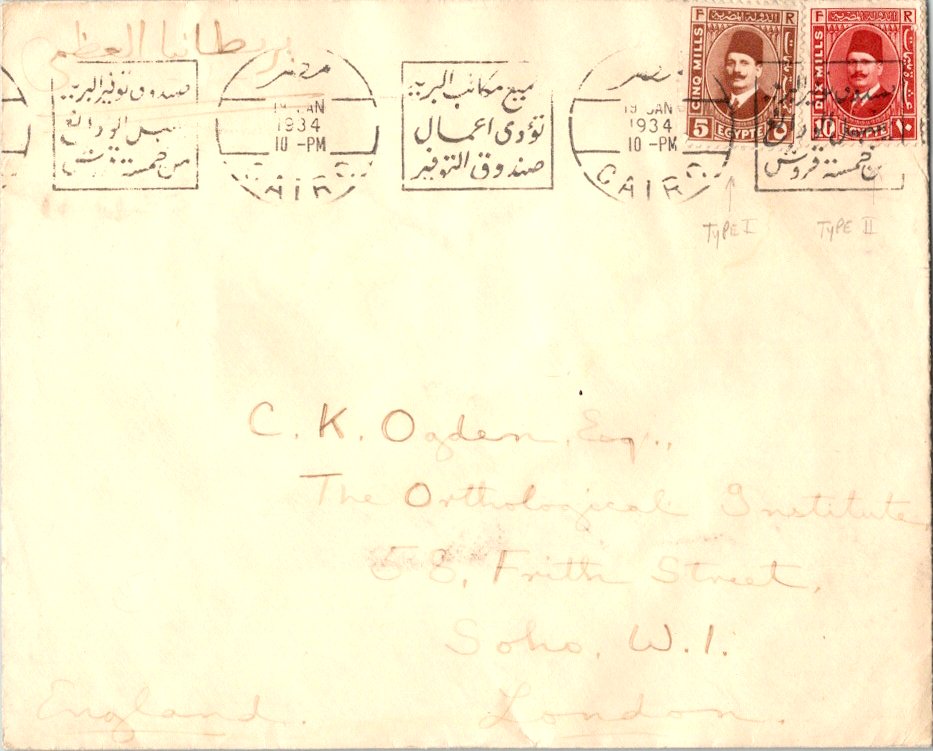 بريطانيا العظمى
F الدولة المصرية R
CINQ MILLS
5 EGYPTE ٥
F الدولة المصرية R
DIX MILLS
10 EGYPTE ١٠
صندوق توفير البريد
يقبل الودائع
من خمسة قروش
مصر
19 JAN
1934
10 - PM
CAIRO
جميع مكاتب البريد
تؤدى اعمال
صندوق التوفير
مصر
19 JAN
1934
10 - PM
CAIRO
صندوق توفير البريد
يقبل الودائع
من خمسة قروش
TYPE I
TYPE II
C. K. Ogden, Esq.,
The Orthological Institute,
58, Frith Street,
Soho, W.1.
England. London.